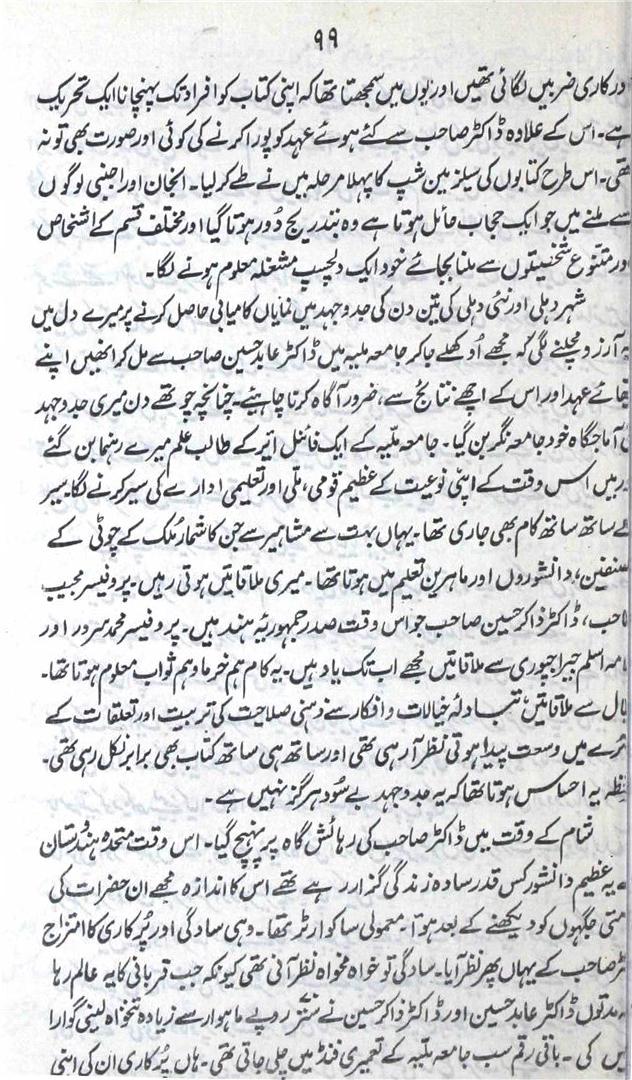 ۹۹
در کاری ضربیں لگائی تھیں اور یوں میں سمجھتا تھا کہ اپنی کتاب کو افراد تک پہنچانا ایک تحریک
ہے۔ اس کے علاوہ ڈاکٹر صاحب سے کئے ہوئے عہد کو پورا کرنے کی کوئی اور صورت بھی تو نہ
تھی۔ اس طرح کتابوں کی سیلز مین شپ کا پہلا مرحلہ میں نے طے کر لیا۔ انجان اور اجنبی لوگوں
سے ملنے میں جو ایک حجاب حائل ہوتا ہے وہ بتدریج دُور ہوتا گیا اور مختلف قسم کے اشخاص
ور متنوع شخصیتوں سے ملنا بجائے خود ایک دلچسپ مشغلہ معلوم ہونے لگا۔
شہر دہلی اور نئی دہلی کی تین دن کی جدوجہد میں نمایاں کامیابی حاصل کرنے پر میرے دل میں
یہ آرزو مچلنے لگی کہ مجھے اوکھلے جا کر جامعہ ملیہ میں ڈاکٹر عابد حسین صاحب سے مل کر انھیں اپنے
یفائے عہد اور اس کے اچھے نتائج سے، ضرور آگاہ کرنا چاہئے۔ چنانچہ چوتھے دن میری جدوجہد
کی آماجگاہ خود جامعہ نگر بن گیا۔ جامعہ ملیہ کے ایک فائنل ائیر کے طالب علم میرے رہنما بن گئے
ور میں اس وقت کے اپنی نوعیت کے عظیم قومی، ملی اور تعلیمی ادارے کی سیر کرنے لگا۔ سیر
کے ساتھ ساتھ کام بھی جاری تھا۔ یہاں بہت سے مشاہیر سے جن کا شمار ملک کے چوٹی کے
صنفین، دانشوروں اور ماہرین تعلیم میں ہوتا تھا۔ میری ملاقاتیں ہوتی رہیں۔ پروفیسر مجیب
احب، ڈاکٹر ذاکر حسین صاحب جو اس وقت صدر جمہوریہ ہند ہیں۔ پروفیسر محمد سرور اور
امہ اسلم جیراجپوری سے ملاقاتیں مجھے اب تک یاد ہیں۔ یہ کام ہم خرما و ہم ثواب معلوم ہوتا تھا۔
مال سے ملاقاتیں، تبادلۂ خیالات و افکار سے ذہنی صلاحیت کی تربیت اور تعلقات کے
ئرے میں وسعت پیدا ہوتی نظر آ رہی تھی اور ساتھ ہی ساتھ کتاب بھی برابر نکل رہی تھی۔
یہ احساس ہوتا تھا کہ یہ جدوجہد بے سُود ہرگز نہیں ہے۔
شام کے وقت میں ڈاکٹر صاحب کی رہائش گاہ پر پہنچ گیا۔ اس وقت متحدہ ہندوستان
کے یہ عظیم دانشور کس قدر سادہ زندگی گزار رہے تھے اس کا اندازہ مجھے ان حضرات کی
متی جگہوں کو دیکھنے کے بعد ہوا۔ معمولی سا کوارٹر تھا۔ وہی سادگی اور پُرکاری کا امتزاج
ٹر صاحب کے یہاں پھر نظر آیا۔ سادگی تو خواہ مخواہ نظر آنی تھی کیونکہ جب قربانی کا یہ عالم رہا
مدتوں ڈاکٹر عابد حسین اور ڈاکٹر ذاکر حسین نے ستر روپے ماہوار سے زیادہ تنخواہ لینی گوارا
یں کی۔ باقی رقم سب جامعہ ملیہ کے تعمیری فنڈ میں چلی جاتی تھی۔ ہاں پُرکاری ان کی اپنی